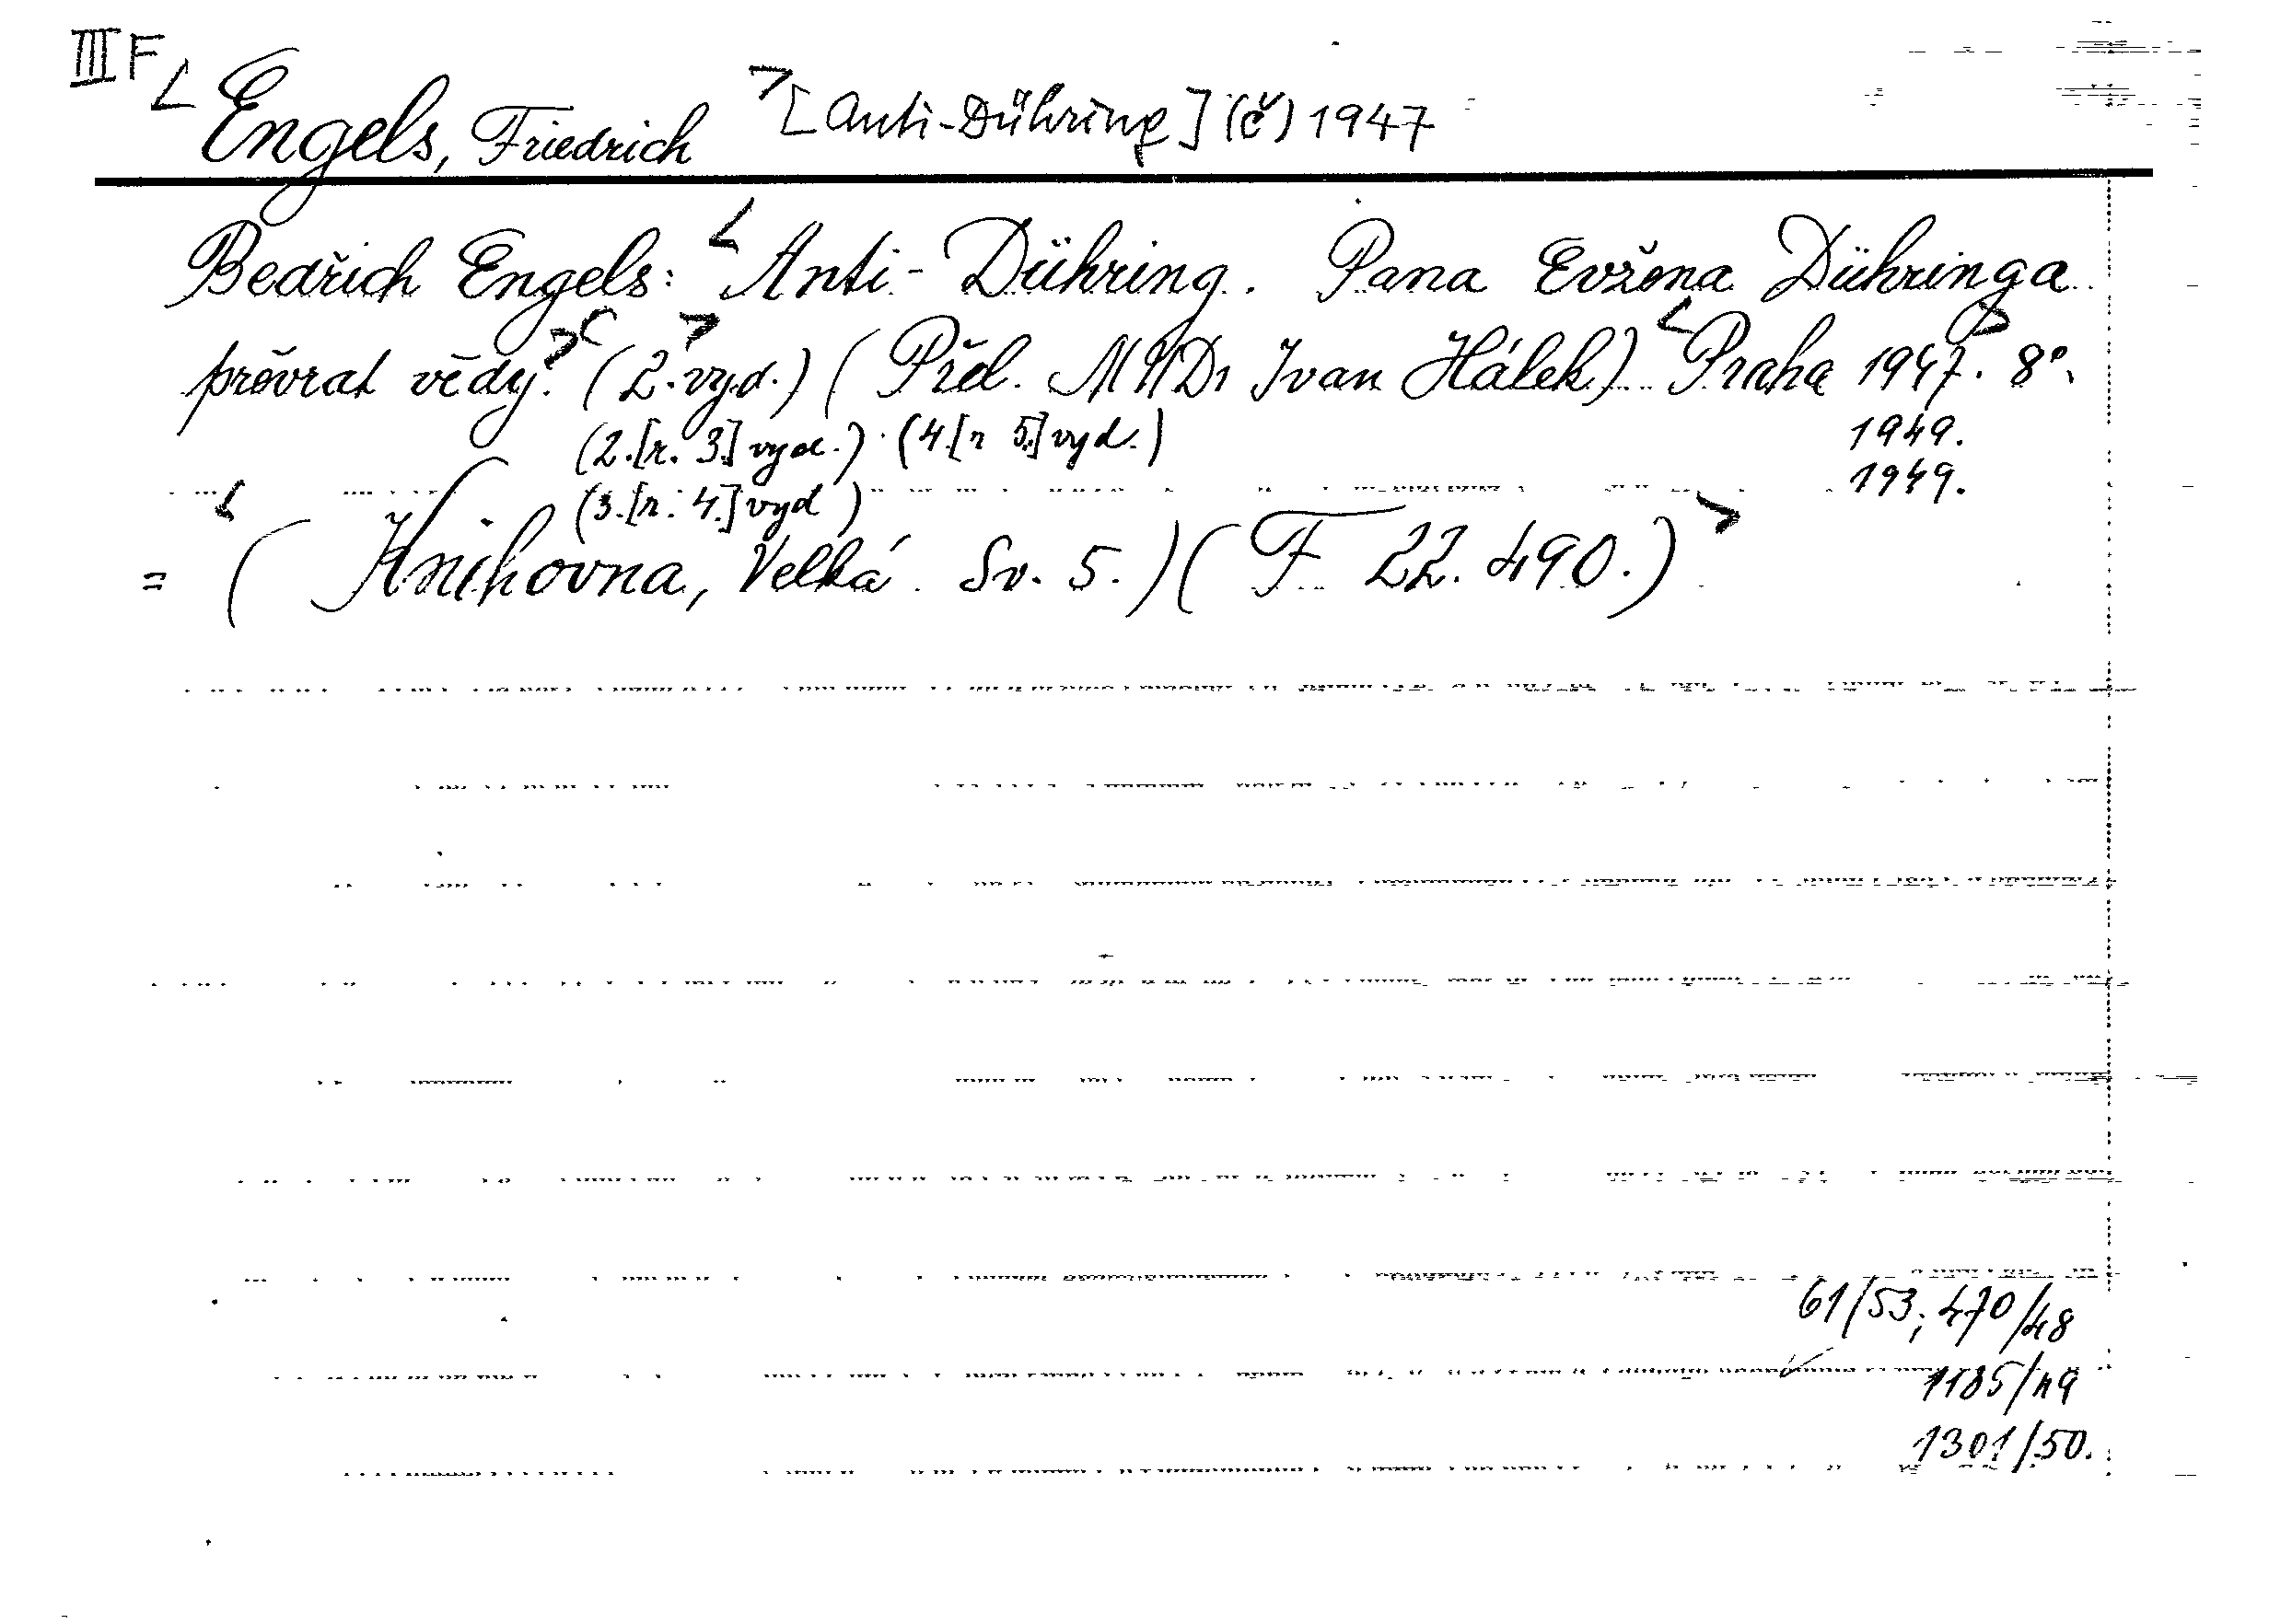 III F < Engels, Friedrich > [Anti-Dühring] (č) 1947
Bedřich Engels: < Anti-Dühring. Pana Evžena Dühringa
převrat vědy. > < (2. vyd.) > (Přel. MUDr Ivan Hálek) < Praha 1947. > 8°.
(2. [r. 3.] vyd.) (4. [r 5.] vyd.) 1949.
(3. [r. 4.] vyd) 1949.
= < (Knihovna, Velká. Sv. 5.) (F 22.490.) >
61/53; 470/48
1185/49
1301/50.